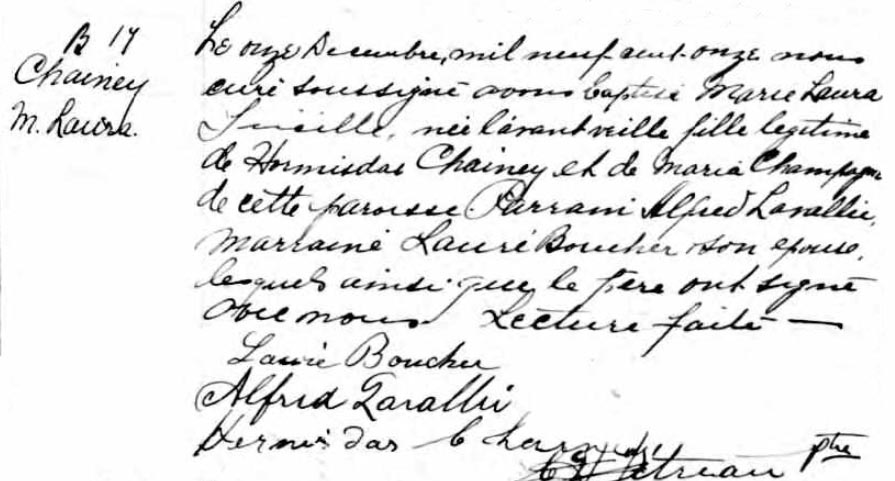 B 17
Chainey
M. Laura.
Le onze Decembre, mil neuf cent-onze nous
curé soussigné avons baptisé Marie Laura
née l'avant veille fille legitime
de Hormisdas Chainey et de Maria Champagne
de cette paroisse. Parrain Alfred Lavallée,
Marraine Laura Boucher son epouse,
lesquels ainsi que le père ont signé
avec nous. Lecture faite —
Boucher
Alfred Lavallée
Hormisdas
ptre